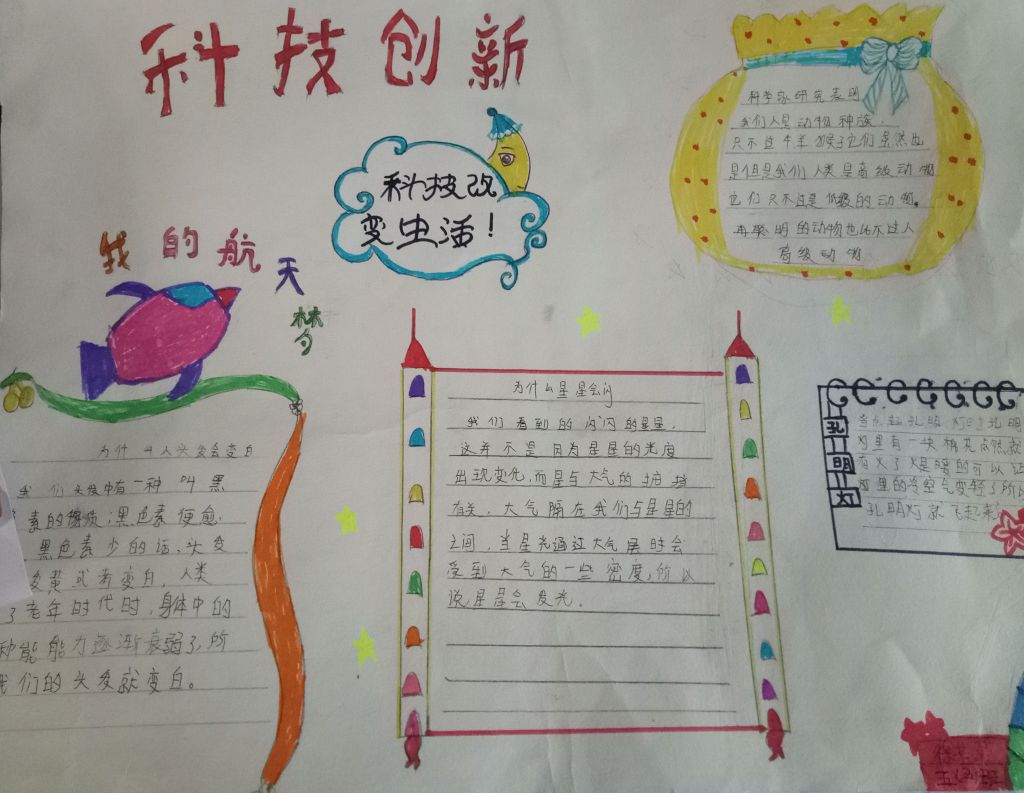 科技创新
科技改
变生活！
我的航天梦
科学家研究表明
我们人是动物种族.
只不过牛羊猴子它们虽然也
是但是我们人类是高级动物
它们只不过是低级的动物。
再聪明的动物也比不过人
高级动物
为什么人头发会变白
我们头发中有一种叫黑
素的物质,黑色素便愈
黑色素少的话,头发
发黄或者变白,人类
了老年时代时,身体中的
种能能力逐渐衰弱了,所
我们的头发就变白。
为什么星星会闪
我们看到的闪闪的星星,
这并不是因为星星的光度
出现变化,而是与大气的
有关,大气隔在我们与星星的
之间,当星光通过大气层时会
受到大气的一些密度,所以
说,星星会发光.
孔明灯
当点起孔明灯时孔明
灯里有一块
有火了火是暖的可以让
灯里的冷空气变轻了所以
孔明灯就飞起来
五(2)班